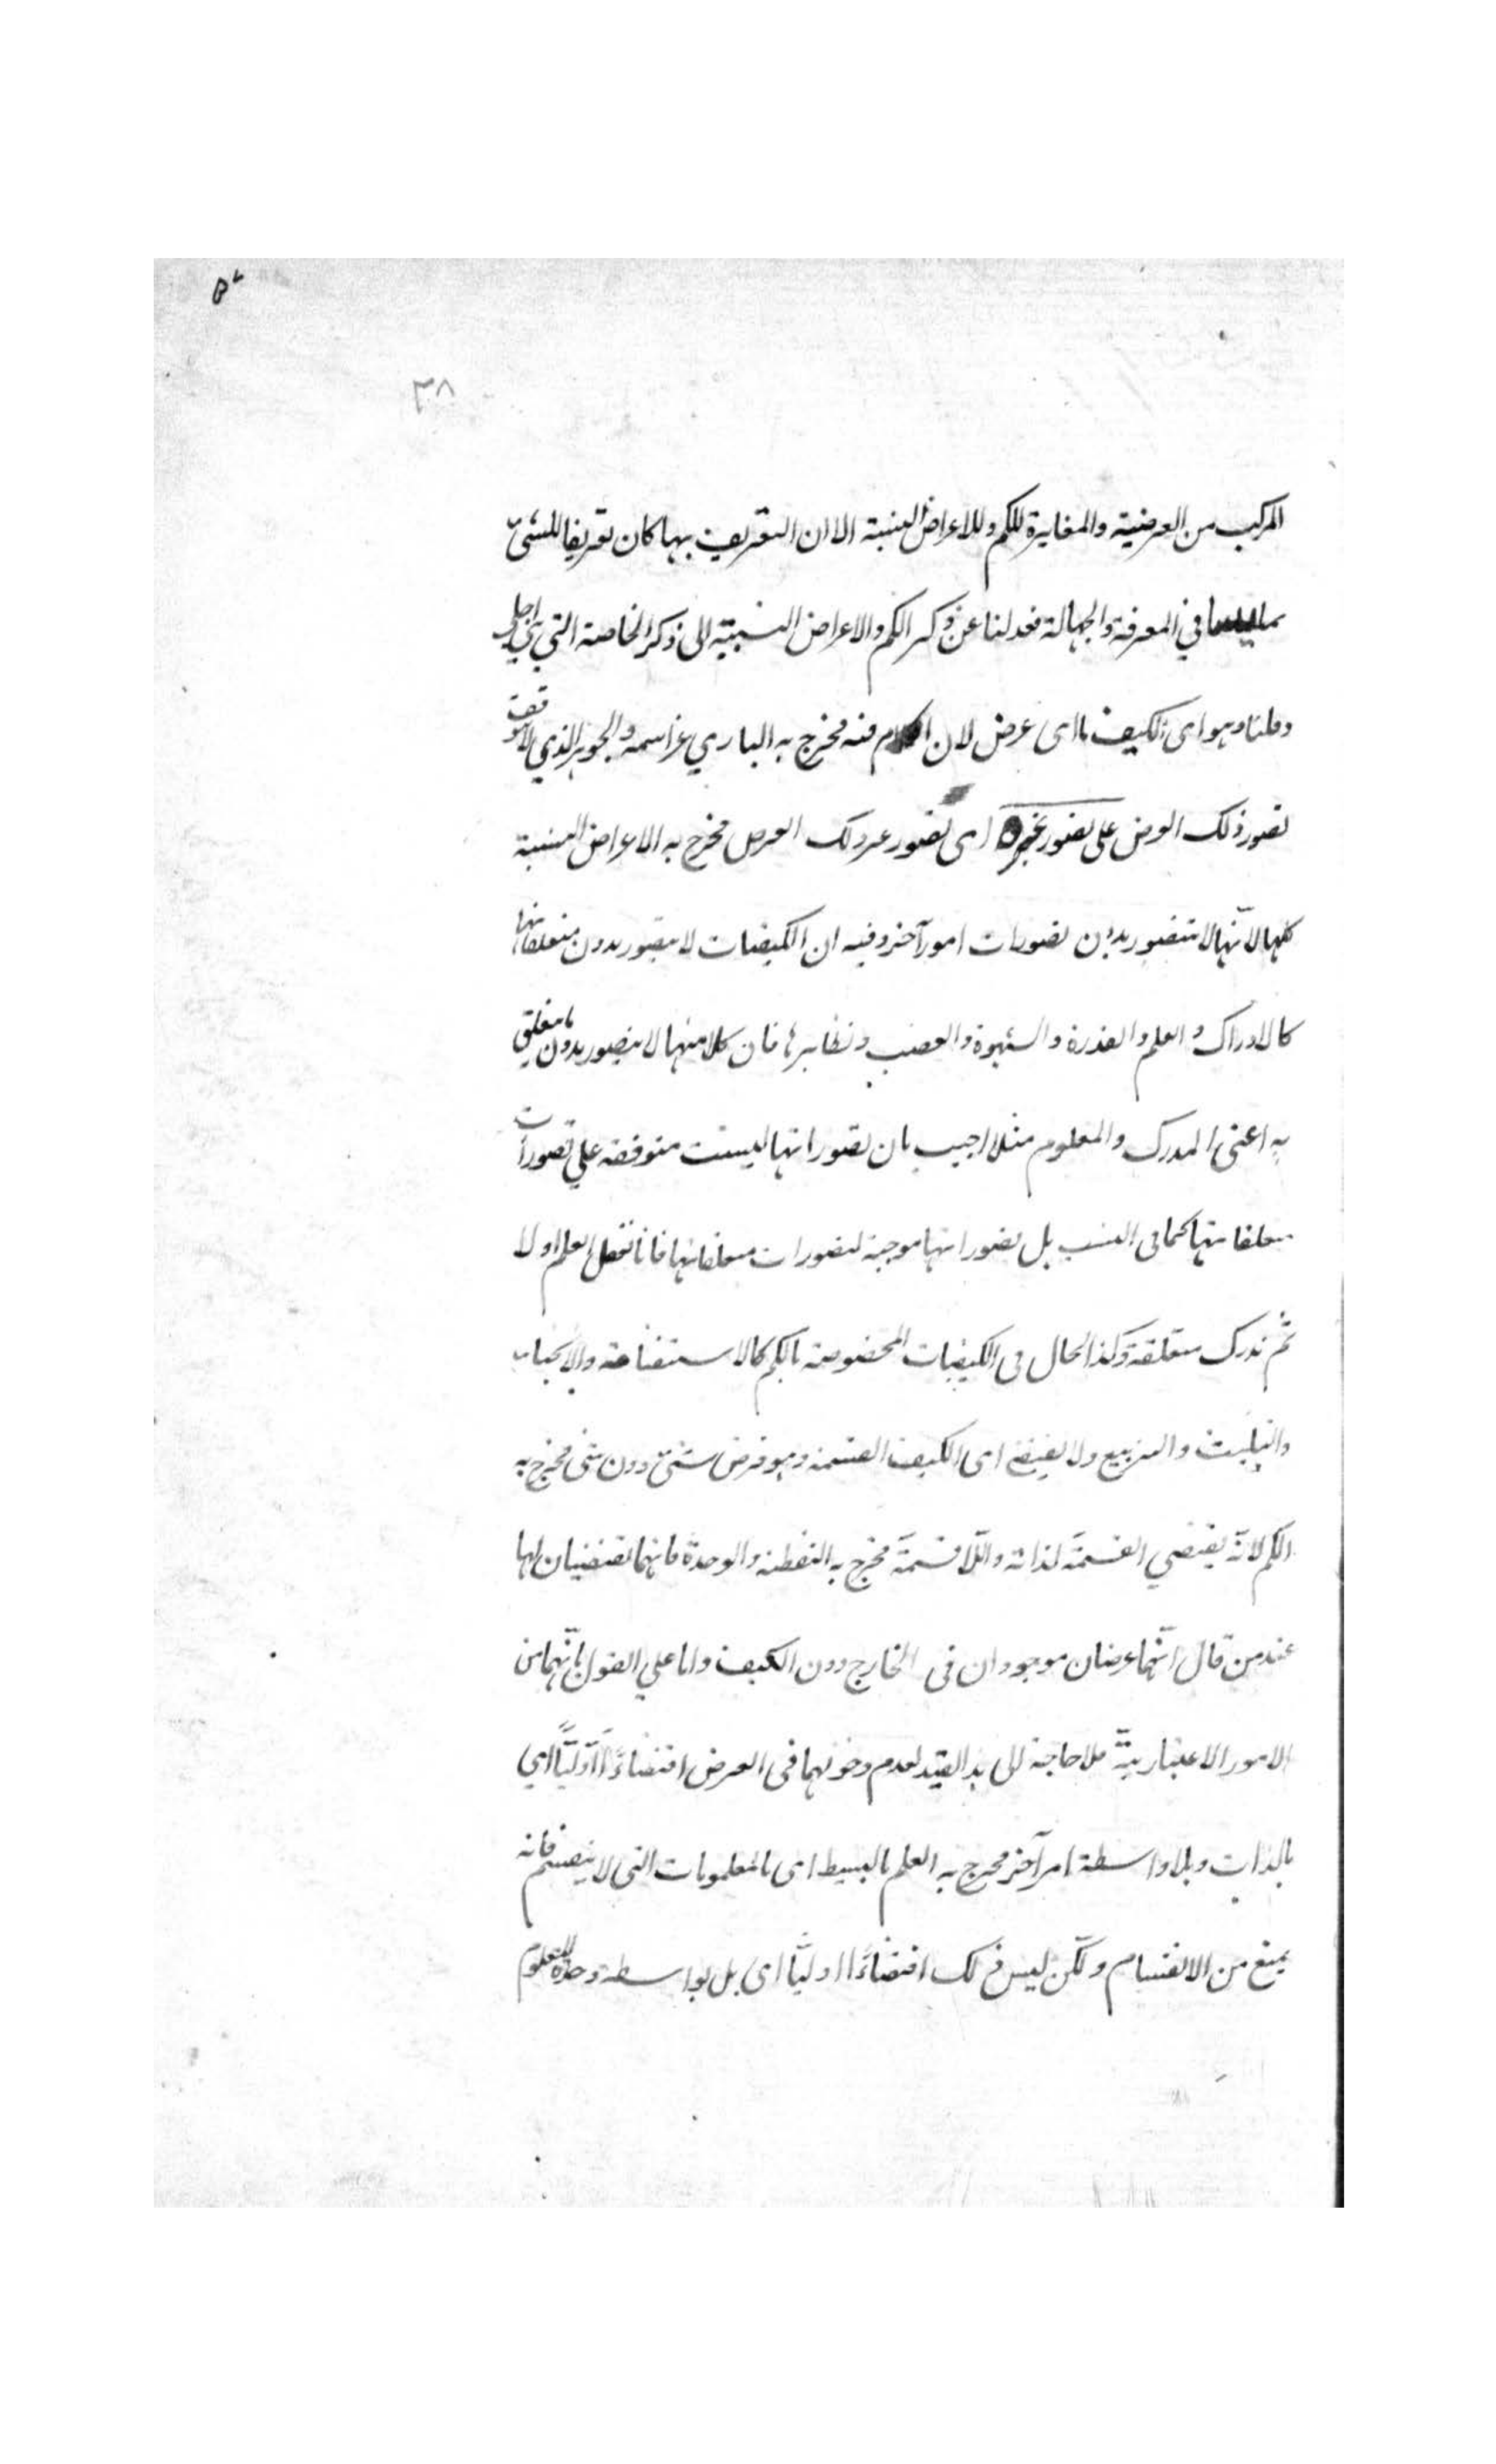 ٣٨
المركب من العرضية والمغايرة للكم وللاعراض النسبة الا ان التعريف بها كان تعريفا للشئ
بما يساويها في المعرفة والجهالة فعدلنا عن ذكر الكم والاعراض النسبية الى ذكر الخاصة التي هي اجلى
وقلنا وهو اى الكيف ما اى عرض لان الكلام فيه فخرج به الباري عز اسمه والجوهر الذي لا يتوقف
تصور ذلك العرض على تصور غيره اى تصور غير ذلك العرض فخرج به الاعراض النسبية
كلها لانها لا تتصور بدون تصورات امور آخر وفيه ان الكيفيات لا يتصور بدون متعلقاتها
كالادراك والعلم والقدرة والشهوة والغضب ونظايرها فان كلا منها لا يتصور بدون ما يتعلق
به اعنى المدرك والمعلوم مثلا اجيب بان تصوراتها ليست متوقفه علي تصورات
متعلقاتها كما في النسب بل تصوراتها موجبة لتصورات متعلقاتها فانا نتعقل العلم اولا
ثم ندرك متعلقه وكذا الحال في الكيفيات المخصوصة بالكم كالاستقامة والانحناء
والتثليث والتربيع ولا يقتضي اى الكيف القسمة وهو فرض شئ دون شئ فخرج به
الكم لانه يقتضي القسمة لذاته واللا قسمة فخرج به النقطة والوحدة فانهما تقتضيان لها
عند من قال انهما عرضان موجودان في الخارج دون الكيف واما علي القول بانهما من
الامور الاعتبارية فلا حاجة الى هذا القيد لعدم دخولهما في العرض اقتضاءً اوليًّا اي
بالذات وبلا واسطة امر آخر فخرج به العلم بالبسيط اى بالمعلومات التي لا ينقسم فانه
يمنع من الانقسام ولكن ليس ذلك اقتضاءً اوليًّا اى بل بواسطة وحدة المعلوم